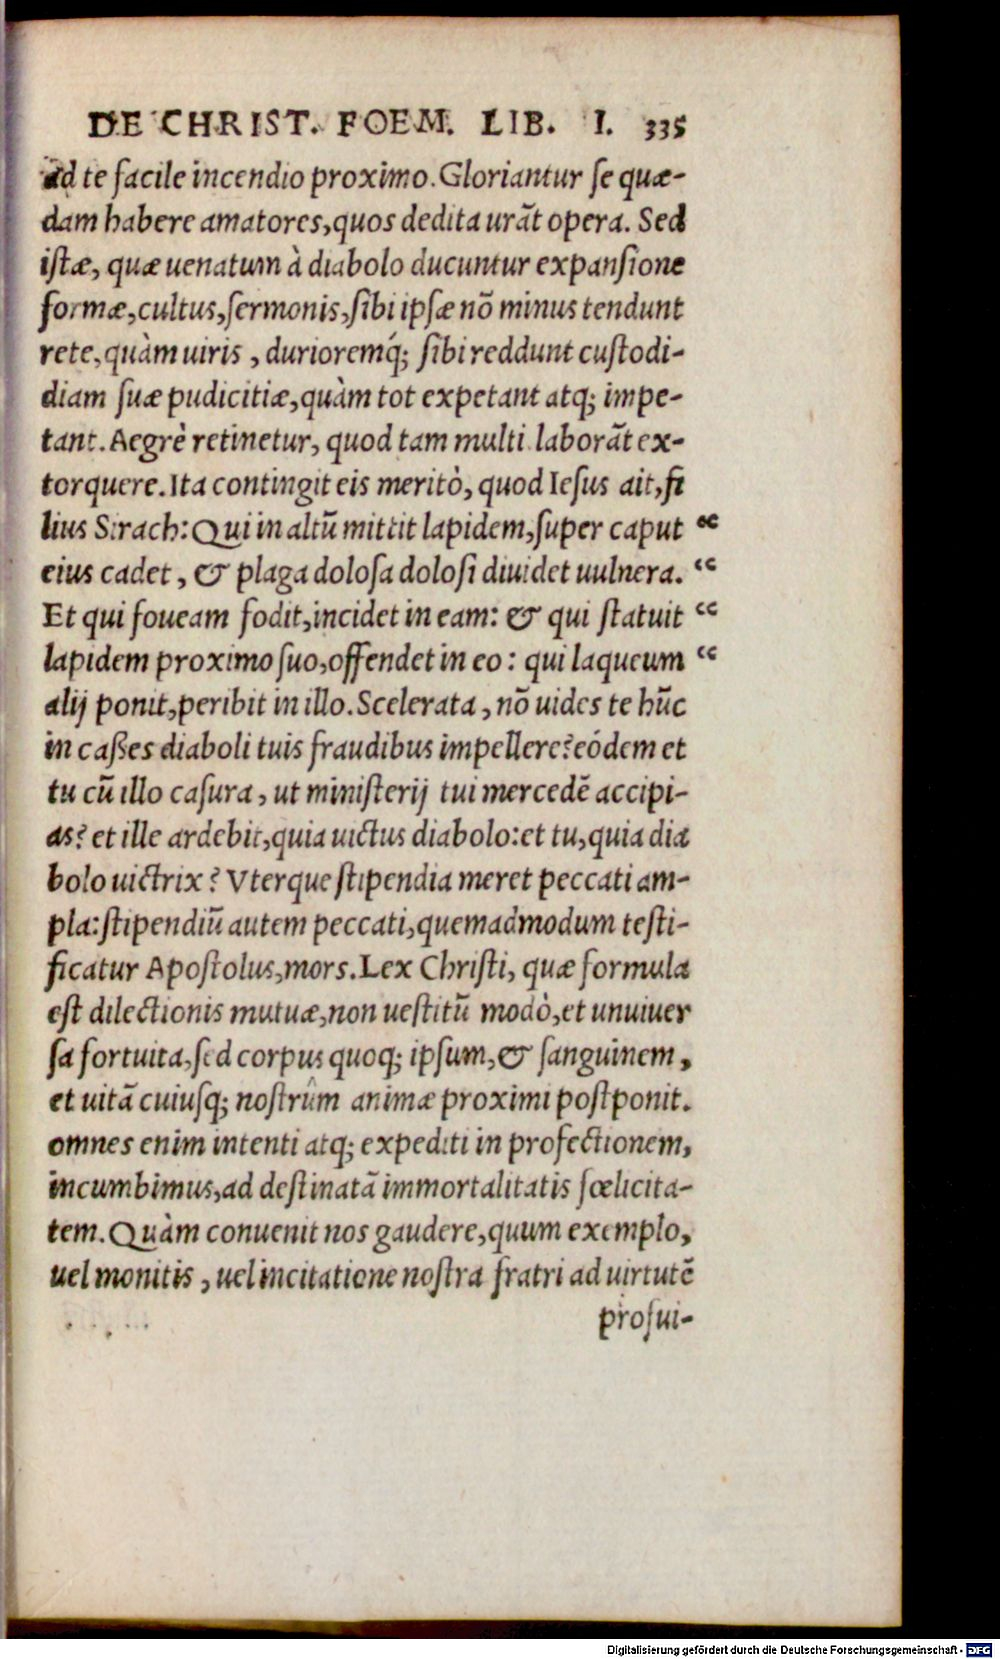 DE CHRIST. FOEM. LIB. I. 335
ad te facile incendio proximo. Gloriantur ſe quæ-
dam habere amatores, quos dedita urãt opera. Sed
iſtæ, quæ uenatum à diabolo ducuntur expanſione
formæ, cultus, ſermonis, ſibi ipſæ nõ minus tendunt
rete, quàm uiris, durioremq́; ſibi reddunt cuſtodi-
diam ſuæ pudicitiæ, quàm tot expetant atq; impe-
tant. Aegrè retinetur, quod tam multi laborãt ex-
torquere. Ita contingit eis meritò, quod Ieſus ait, fi
lius Sirach: Qui in altũ mittit lapidem, ſuper caput “
eius cadet, & plaga doloſa doloſi diuidet uulnera. “
Et qui foueam fodit, incidet in eam: & qui ſtatuit “
lapidem proximo ſuo, offendet in eo: qui laqueum “
alij ponit, peribit in illo. Scelerata, nõ uides te hũc
in caßes diaboli tuis fraudibus impellere? eódem et
tu cũ illo caſura, ut miniſterij tui mercedẽ accipi-
as? et ille ardebit, quia uictus diabolo: et tu, quia dia
bolo uictrix? Vterque ſtipendia meret peccati am-
pla: ſtipendiũ autem peccati, quemadmodum teſti-
ficatur Apoſtolus, mors. Lex Chriſti, quæ formula
eſt dilectionis mutuæ, non ueſtitũ modò, et unuiuer
ſa fortuita, ſed corpus quoq; ipſum, & ſanguinem,
et uitã cuiuſq; noſtrûm animæ proximi poſtponit.
omnes enim intenti atq; expediti in profectionem,
incumbimus, ad deſtinatã immortalitatis fœlicita-
tem. Quàm conuenit nos gaudere, quum exemplo,
uel monitis, uel incitatione noſtra fratri ad uirtutẽ
proſui-
Digitalisierung gefördert durch die Deutsche Forschungsgemeinschaft - DFG